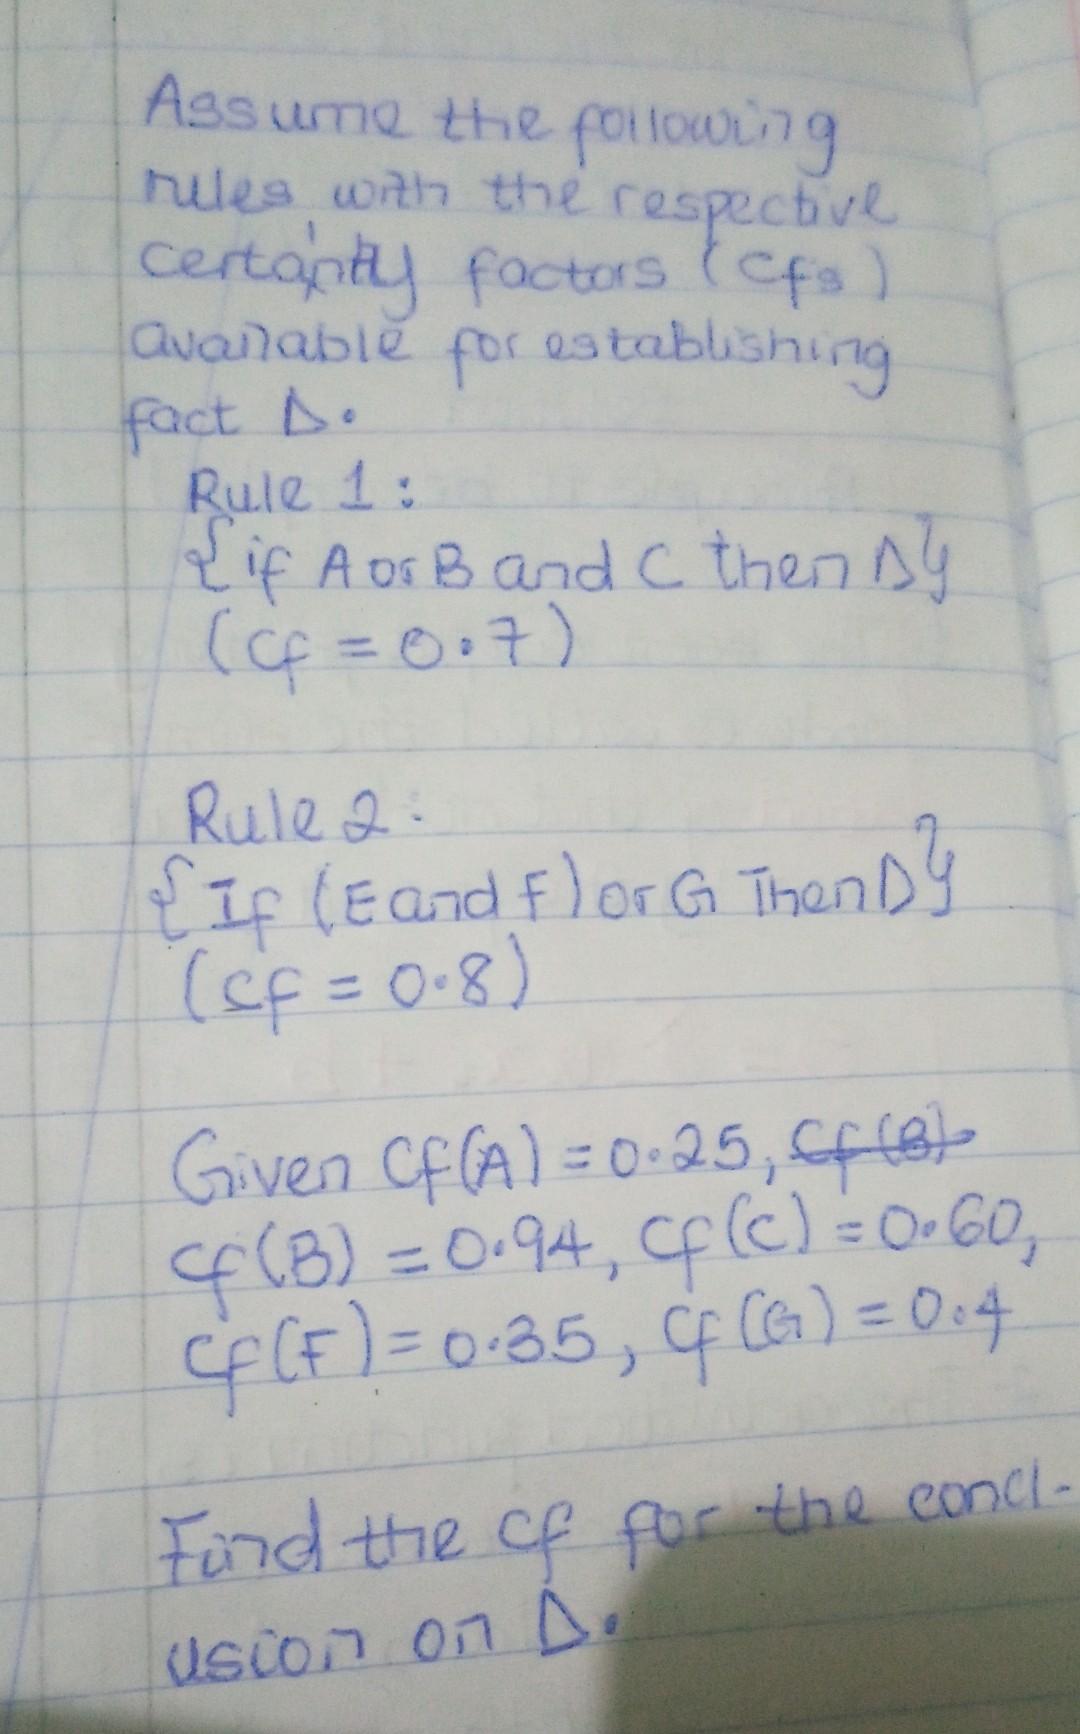 Assume the following
rules with the respective
certainty factors (cfs)
available for establishing
fact D.
Rule 1:
{if A or B and C then D}
(cf = 0.7)
Rule 2:
{If (E and F) or G Then D}
(cf = 0.8)
Given Cf(A) = 0.25, cf(B)
cf(B) = 0.94, cf(C) = 0.60,
cf(F) = 0.35, cf(G) = 0.4
Find the cf for the concl-
usion on D.